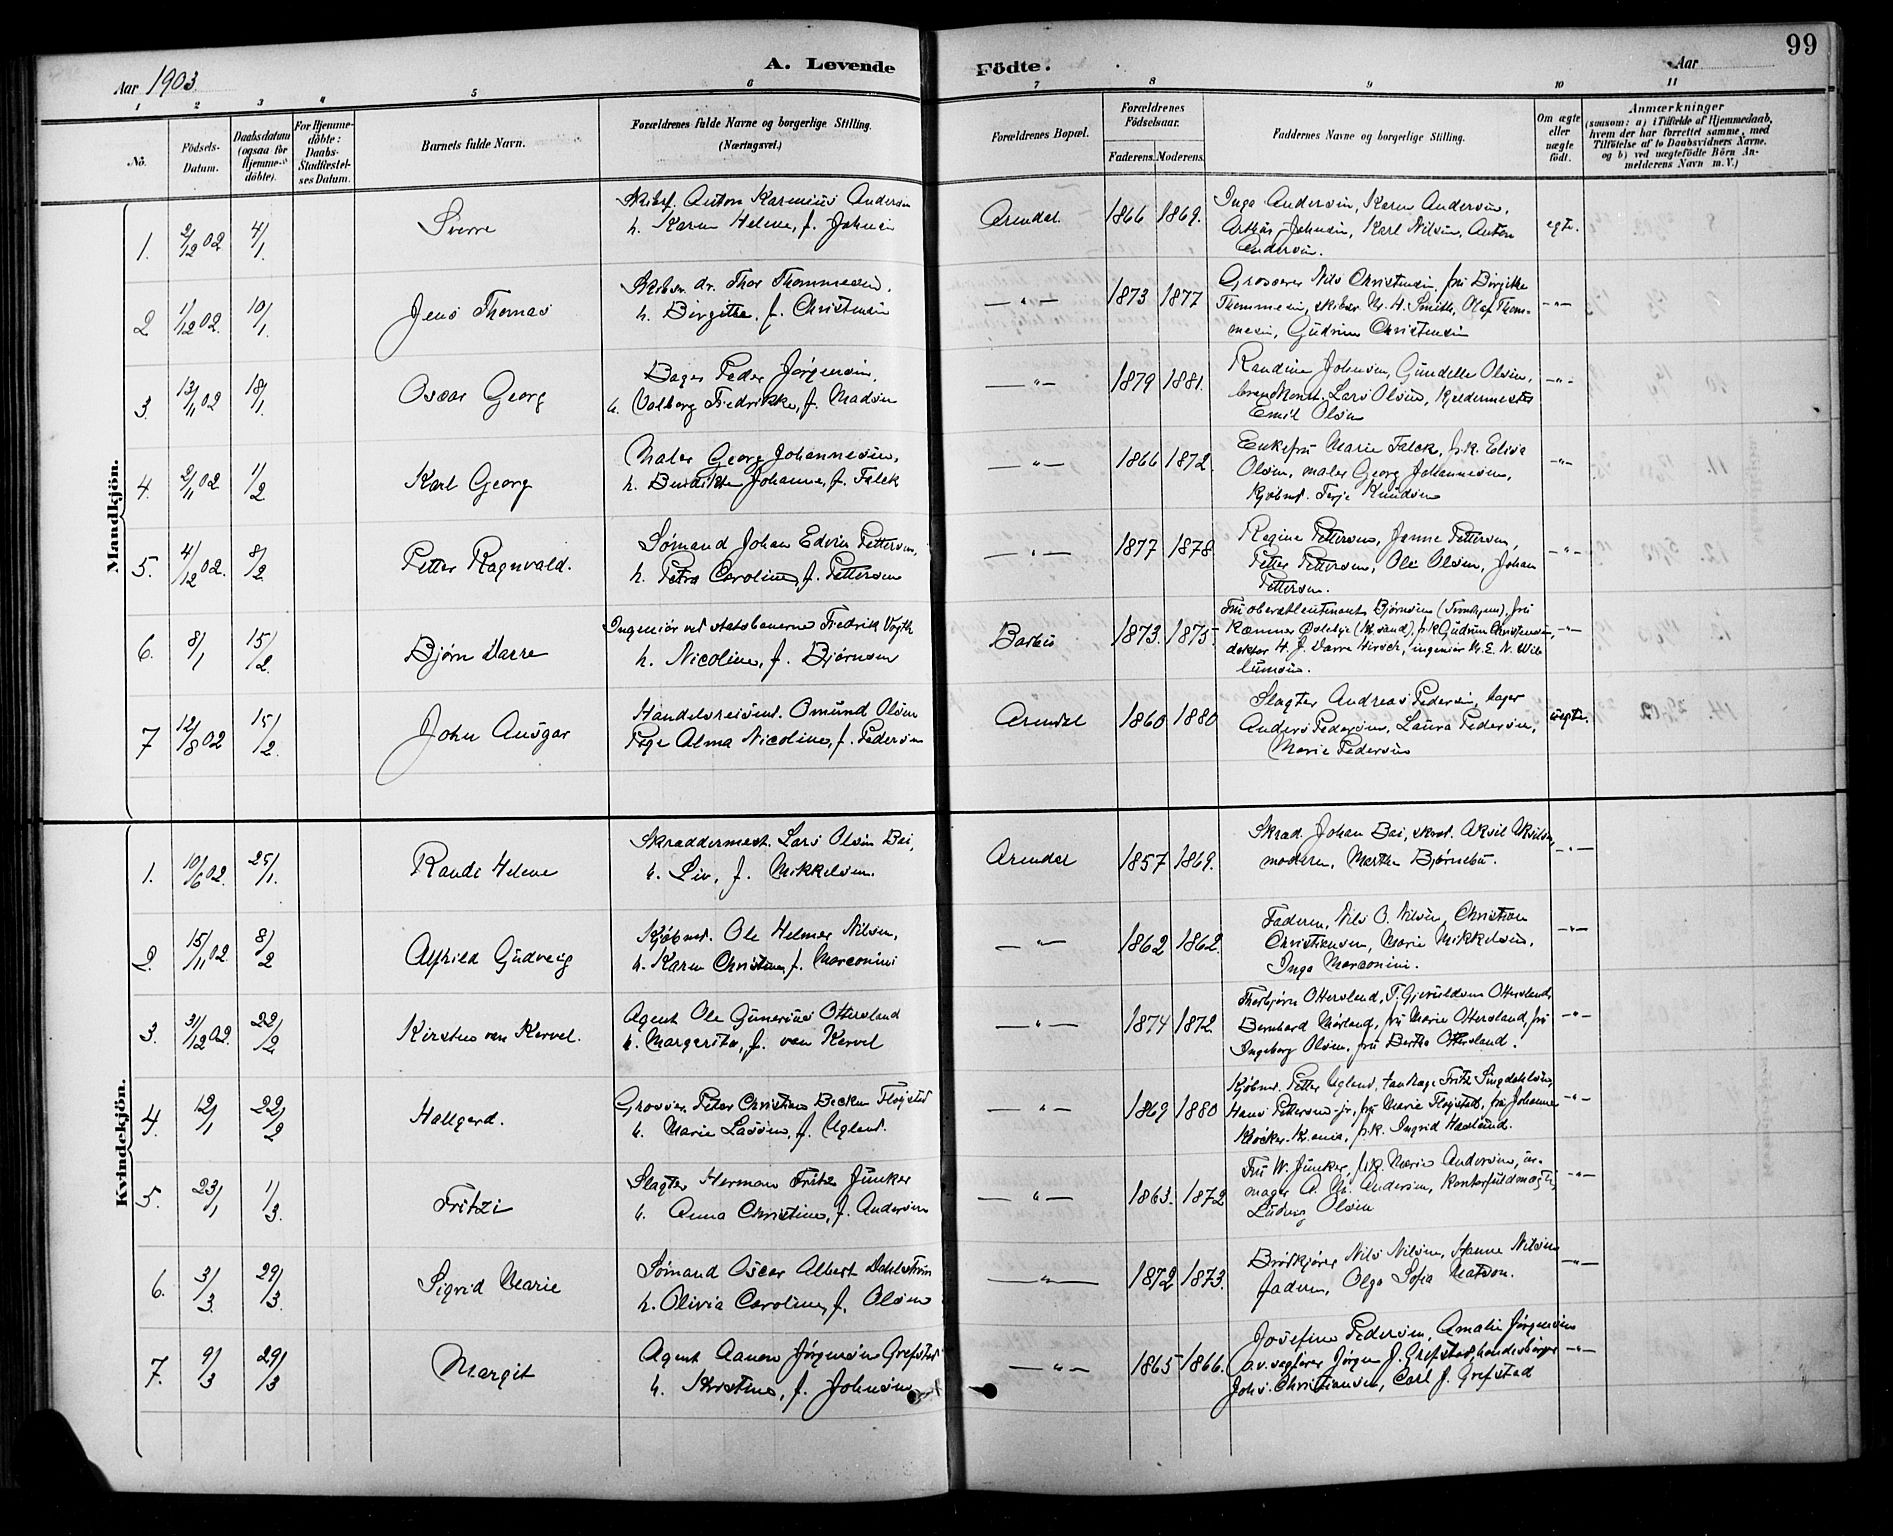 99
Aar 1903.
A. Levende
Födte.
Aar
1 2 3 4 5 6 7 8 9 10 11
No.
Födsels-Datum.
Daabsdatum (ogsaa for Hjemme-döbte).
For Hjemme-döbte: Daabs-Stadfæstel-ses Datum.
Barnets fulde Navn.
Forældrenes fulde Navne og borgerlige Stilling.
(Næringsvei.)
Forældrenes Bopæl.
Forældrenes Födselsaar.
Faderens. Moderens.
Faddernes Navne og borgerlige Stilling.
Om ægte eller uægte födt.
Anmærkninger
(saasom: a) i Tilfælde af Hjemmedaab, hvem der har forrettet samme, med Tilföielse af to Daabsvidners Navne, og b) ved uægtefödte Börn Anmelderens Navn m. V.)
Mandkjön.
1. 2/12 02 4/1 Sverre
Skibsf. Anton Karenius Andersen
h. Karen Helene, f. Johnsen
Arendal. 1866 1869.
Inga Andersen, Karen Andersen,
Arthur Johnsen, Karl Nilsen, Anton
Andersen.
egte.
2 1/12 02. 10/1 Jens Thomas
Skibsr. dr. Thor Thommesen,
h. Birgithe, f. Christensen
—"— 1873 1877
Grosserer Nils Christensen, fru Birgithe
Thommesen, skibsr M. H. Smith, Olaf Thom-
mesen, Gudrun Christensen
—"—
3. 13/11 02 18/1 Oscar Georg
Bager Peder Jörgensen,
h. Valborg Fredrikke, f. Madsen
—"— 1879 1881.
Randine Johnsen, Gundelle Olsen,
brandkonst. Lars Olsen, Kjeldermester
Emil Olsen
—"—
4. 2/11 02 1/2 Karl Georg
Maler Georg Johannesen,
h. Bendikte Johanne, f. Falck
—"— 1866 1872.
Enkefru Marie Falck, frk. Elisa
Olsen, maler Georg Johannesen,
Kjöbmd. Terje Knudsen
—"—
5. 4/12 02. 8/2 Petter Ragnvald.
Sömand Johan Edvin Pettersen,
h. Petra Caroline, f. Pettersen
—"— 1877 1878
Regine Pettersen, Janne Pettersen,
Petter Pettersen, Ole Olsen, Johan
Pettersen.
—"—
6. 8/1 15/2. Björn Darre
Ingeniör ved statsbanerne Fredrik Vogth
h. Nicoline, f. Björnsen
Barbu 1873. 1875
Fru oberstleutenant Björnsen (Trondhjem), fru
Kæmner (Kr.sand), frk Gudrun Christensen,
doktor H. J. Darre Hirsch, ingeniör M. E. N. Wil-
lumsen.
—"—
7 12/8 02 15/2. John Ansgar
Handelsreisend. Omund Olsen
Pige Alma Nicoline, f. Pedersen
Arendal 1860 1880
Slagter Andreas Pedersen, bager
Anders Pedersen, Laura Pedersen,
Marie Pedersen
uegte.
Kvindekjön.
1. 10/6 02. 25/1. Randi Helene
Skræddermest. Lars Olsen Bei,
h. Siv, f. Mikkelsen.
Arendal 1857 1869.
Skræd. Johan Bei, skræd. Aksel Akselsen
moderen, Marthe Björnebu.
—"—
2. 15/11 02. 8/2 Alfhild Gudveig
Kjöbmd. Ole Helmer Nilsen,
h. Karen Christine, f. Marconini
—"— 1862 1862.
Faderen, Nils O. Nilsen, Christian
Christiansen, Marie Mikkelsen,
Inga Marconini.
—"—
3. 31/12 02. 22/2 Kirsten van Kervel.
Agent Ole Gunerius Ottersland
h. Margarita, f. van Kervel
—"— 1874 1872.
Thorbjörn Ottersland, T. Gjeruldsen Ottersland,
Bernhard Mörland, fru Marie Ottersland, fru
Ingeborg Olsen, fru Bertha Ottersland.
—"—
4. 12/1 22/2 Hallgerd.
Grosser. Peter Christian Becker Flöjstad
h. Marie Lassen, f. Ugland.
—"— 1869 1880
Kjöbmd. Petter Ugland, tandlæge Fritz Singdahlsen,
Hans Pettersen jr, fru Marie Flöjstad, fru Johanne
Klöcker-Kr.ania, frk. Ingrid Haslund.
—"—
5. 23/1 1/3. Fritzi
Slagter Herman Fritz Junker
h. Anna Christine, f. Andersen
—"— 1863. 1872
Fru W. Junker, frk Marie Andersen, ur-
mager A. M. Andersen, Kontorfuldmægtig
Ludvig Olsen
—"—
6. 3/3. 29/3. Sigrid Marie
Sömand Oscar Albert Dahlström
h. Olivia Caroline, f. Olsen
—"— 1872 1873.
Brödkjörer Nils Nilsen, Hanne Nilsen
faderen, Olga Sofia Matson.
—"—
7. 9/3 29/3 Margit
Agent Aanen Jörgensen Grefstad
h. Kristine, f. Johnsen
—"— 1865 1866.
Josefine Pedersen, Amalie Jörgensen
o.r. sagförer Jörgen J. Grefstad, handelsborger
Johs. Christiansen, Carl J. Grefstad
—"—